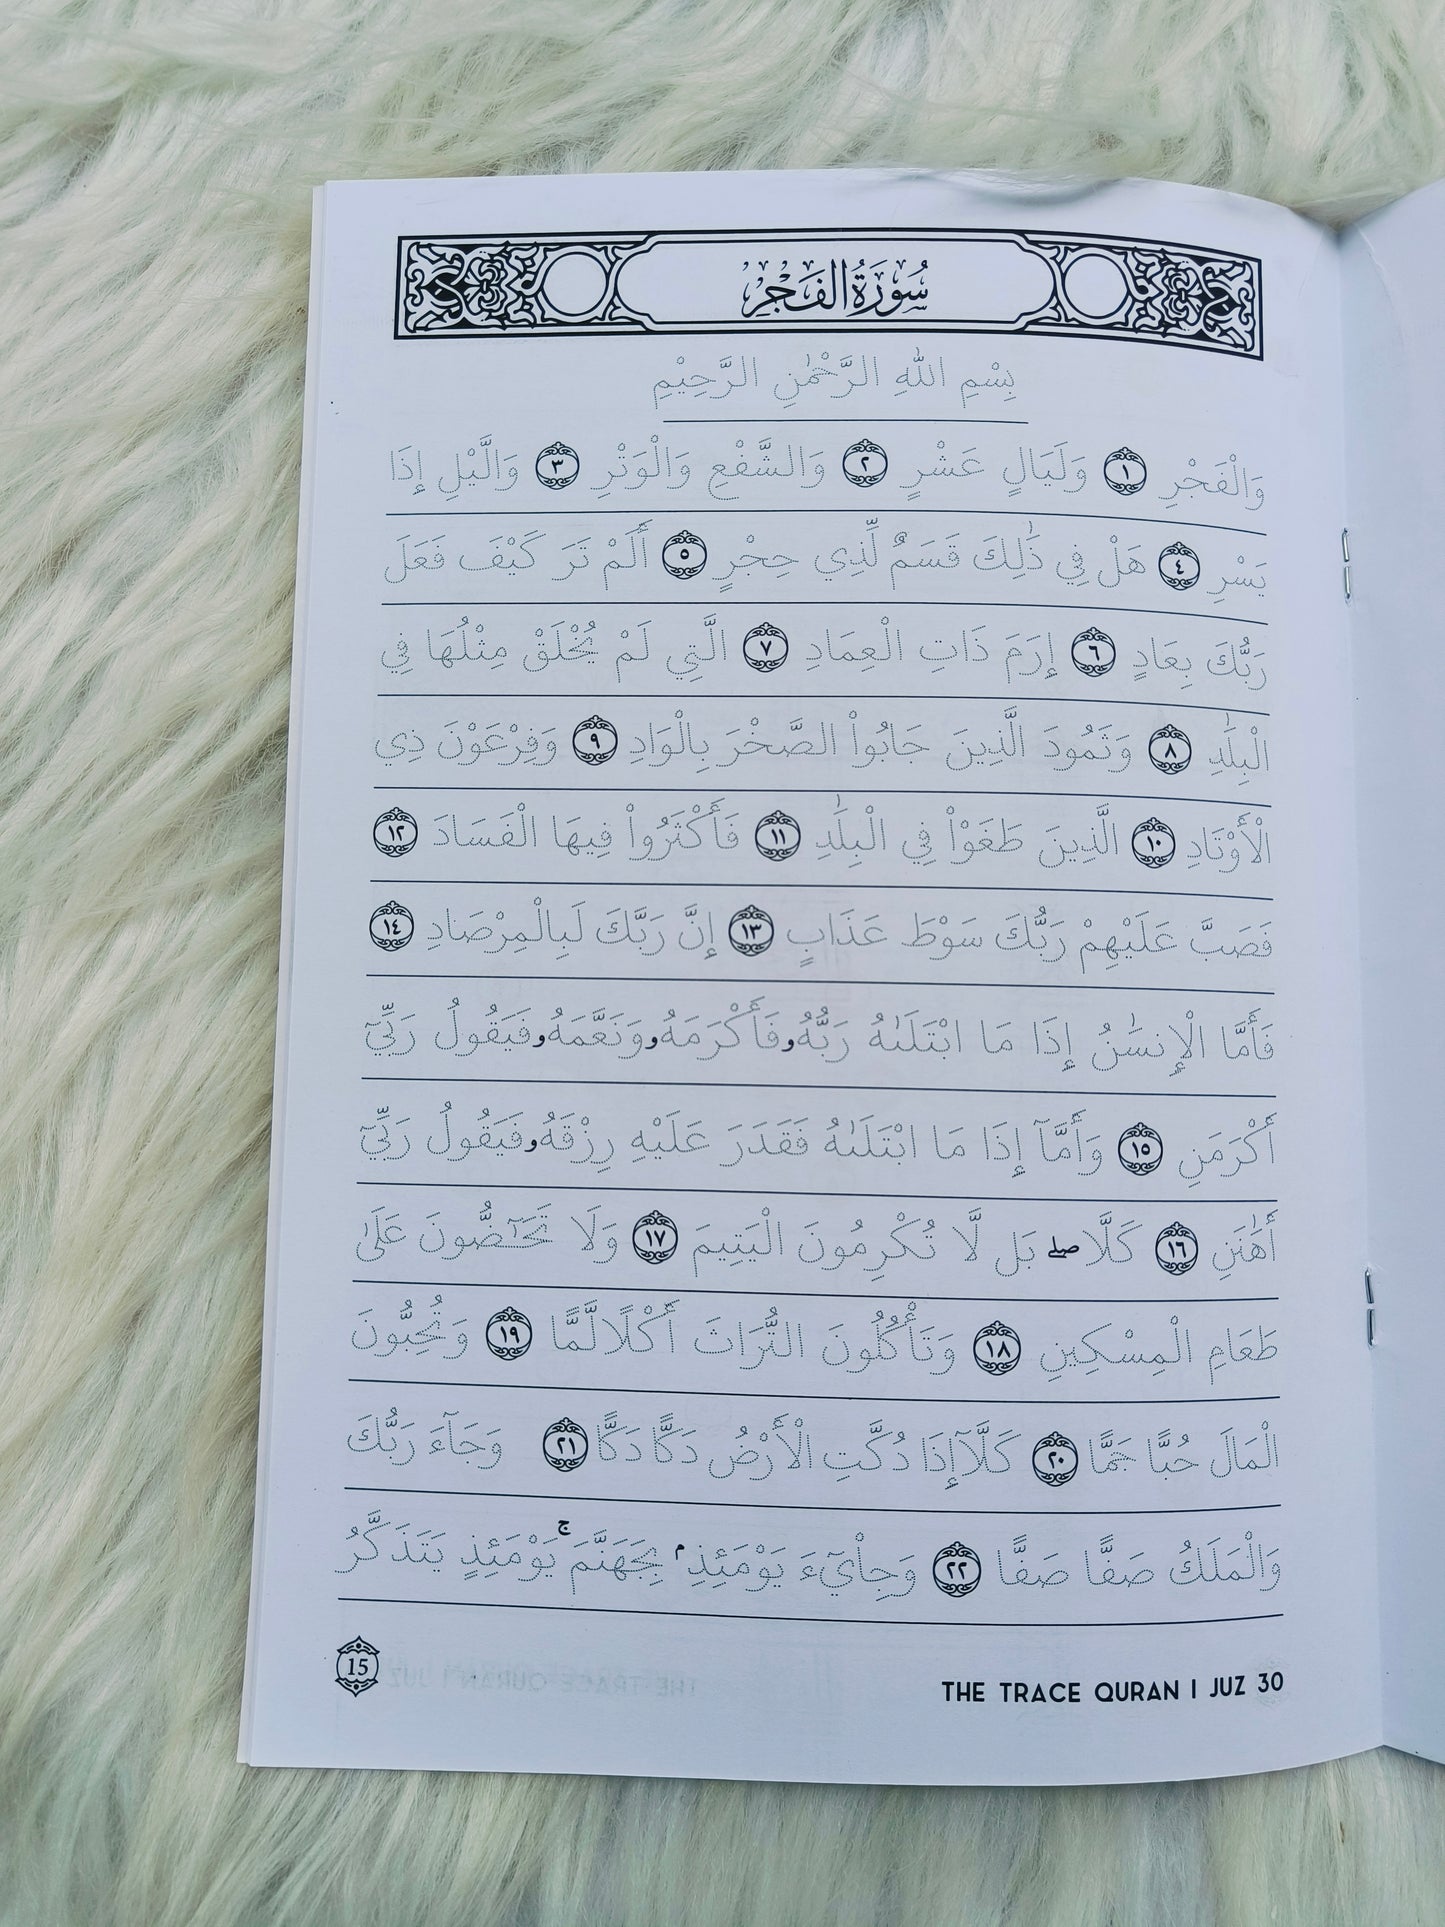 سُورَةُ الفَجْرِ
بِسْمِ اللهِ الرَّحْمٰنِ الرَّحِيْمِ
وَالْفَجْرِ ١ وَلَيَالٍ عَشْرٍ ٢ وَالشَّفْعِ وَالْوَتْرِ ٣ وَالَّيْلِ إِذَا
يَسْرِ ٤ هَلْ فِي ذَٰلِكَ قَسَمٌ لِّذِي حِجْرٍ ٥ أَلَمْ تَرَ كَيْفَ فَعَلَ
رَبُّكَ بِعَادٍ ٦ إِرَمَ ذَاتِ الْعِمَادِ ٧ الَّتِي لَمْ يُخْلَقْ مِثْلُهَا فِي
الْبِلَٰدِ ٨ وَثَمُودَ الَّذِينَ جَابُواْ الصَّخْرَ بِالْوَادِ ٩ وَفِرْعَوْنَ ذِي
الْأَوْتَادِ ١٠ الَّذِينَ طَغَوْاْ فِي الْبِلَٰدِ ١١ فَأَكْثَرُواْ فِيهَا الْفَسَادَ ١٢
فَصَبَّ عَلَيْهِمْ رَبُّكَ سَوْطَ عَذَابٍ ١٣ إِنَّ رَبَّكَ لَبِالْمِرْصَادِ ١٤
فَأَمَّا الْإِنسَٰنُ إِذَا مَا ابْتَلَىٰهُ رَبُّهُۥ فَأَكْرَمَهُۥ وَنَعَّمَهُۥ فَيَقُولُ رَبِّيٓ
أَكْرَمَنِ ١٥ وَأَمَّآ إِذَا مَا ابْتَلَىٰهُ فَقَدَرَ عَلَيْهِ رِزْقَهُۥ فَيَقُولُ رَبِّيٓ
أَهَٰنَنِ ١٦ كَلَّا ۖ بَل لَّا تُكْرِمُونَ الْيَتِيمَ ١٧ وَلَا تَحَٰٓضُّونَ عَلَىٰ
طَعَامِ الْمِسْكِينِ ١٨ وَتَأْكُلُونَ التُّرَاثَ أَكْلًا لَّمًّا ١٩ وَتُحِبُّونَ
الْمَالَ حُبًّا جَمًّا ٢٠ كَلَّآ إِذَا دُكَّتِ الْأَرْضُ دَكًّا دَكًّا ٢١ وَجَآءَ رَبُّكَ
وَالْمَلَكُ صَفًّا صَفًّا ٢٢ وَجِاْيٓءَ يَوْمَئِذِۭ بِجَهَنَّمَ ۚ يَوْمَئِذٍ يَتَذَكَّرُ
15
THE TRACE QURAN | JUZ 30